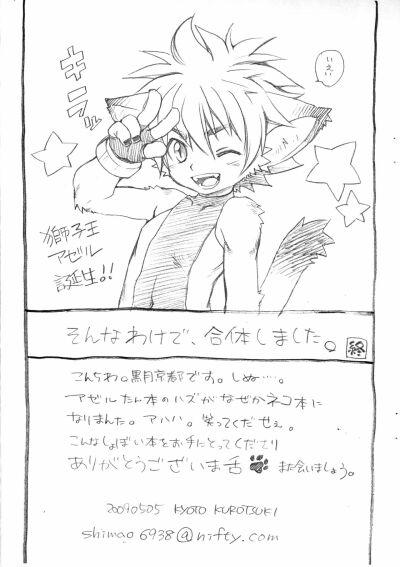 キラッ
いえい
獅子王
アゼル
誕生!!
そんなわけで、合体しました。
終
こんちわ。黒月京都です。しぬ…。
アゼルたん本のハズがなぜかネコ本に
なりました。アハハ。笑ってくだせぇ。
こんなしょぼい本をお手にとってくださり
ありがとうございま舌 また会いましょう。
20090505 KYOTO KUROTSUKI
shimao6938@nifty.com